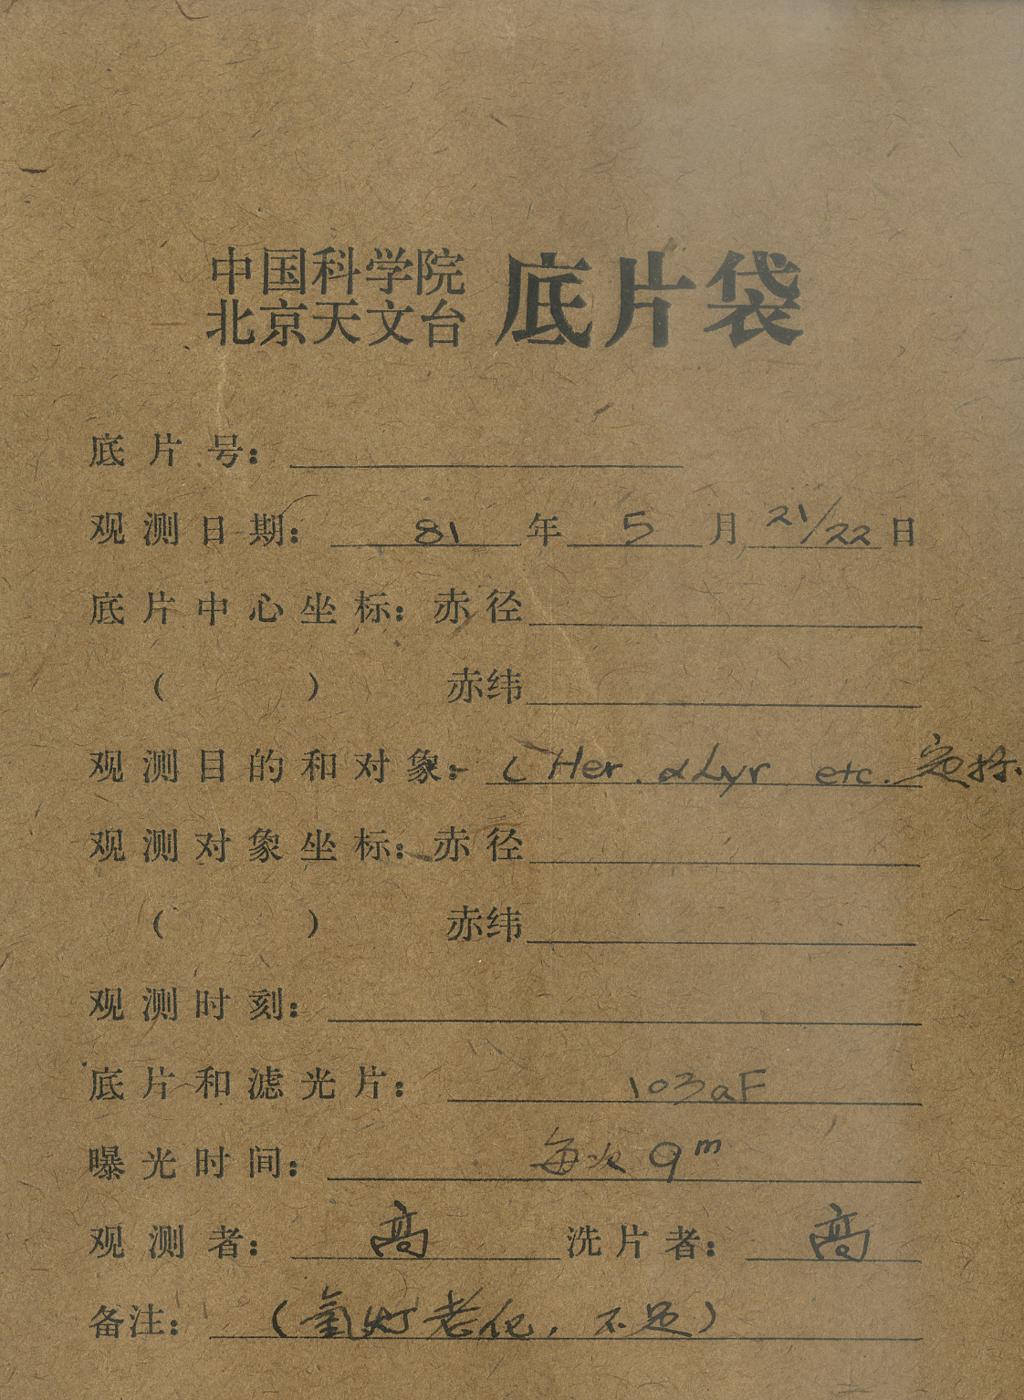 中国科学院
北京天文台 底片袋
底片号:
观测日期: 81 年 5 月 21/22 日
底片中心坐标: 赤径
( ) 赤纬
观测目的和对象: ( Her. αLyr etc. 定标.
观测对象坐标: 赤径
( ) 赤纬
观测时刻:
底片和滤光片: 103aF
曝光时间: 每次 9m
观测者: 高 洗片者: 高
备注: (氢灯老化, 不足)